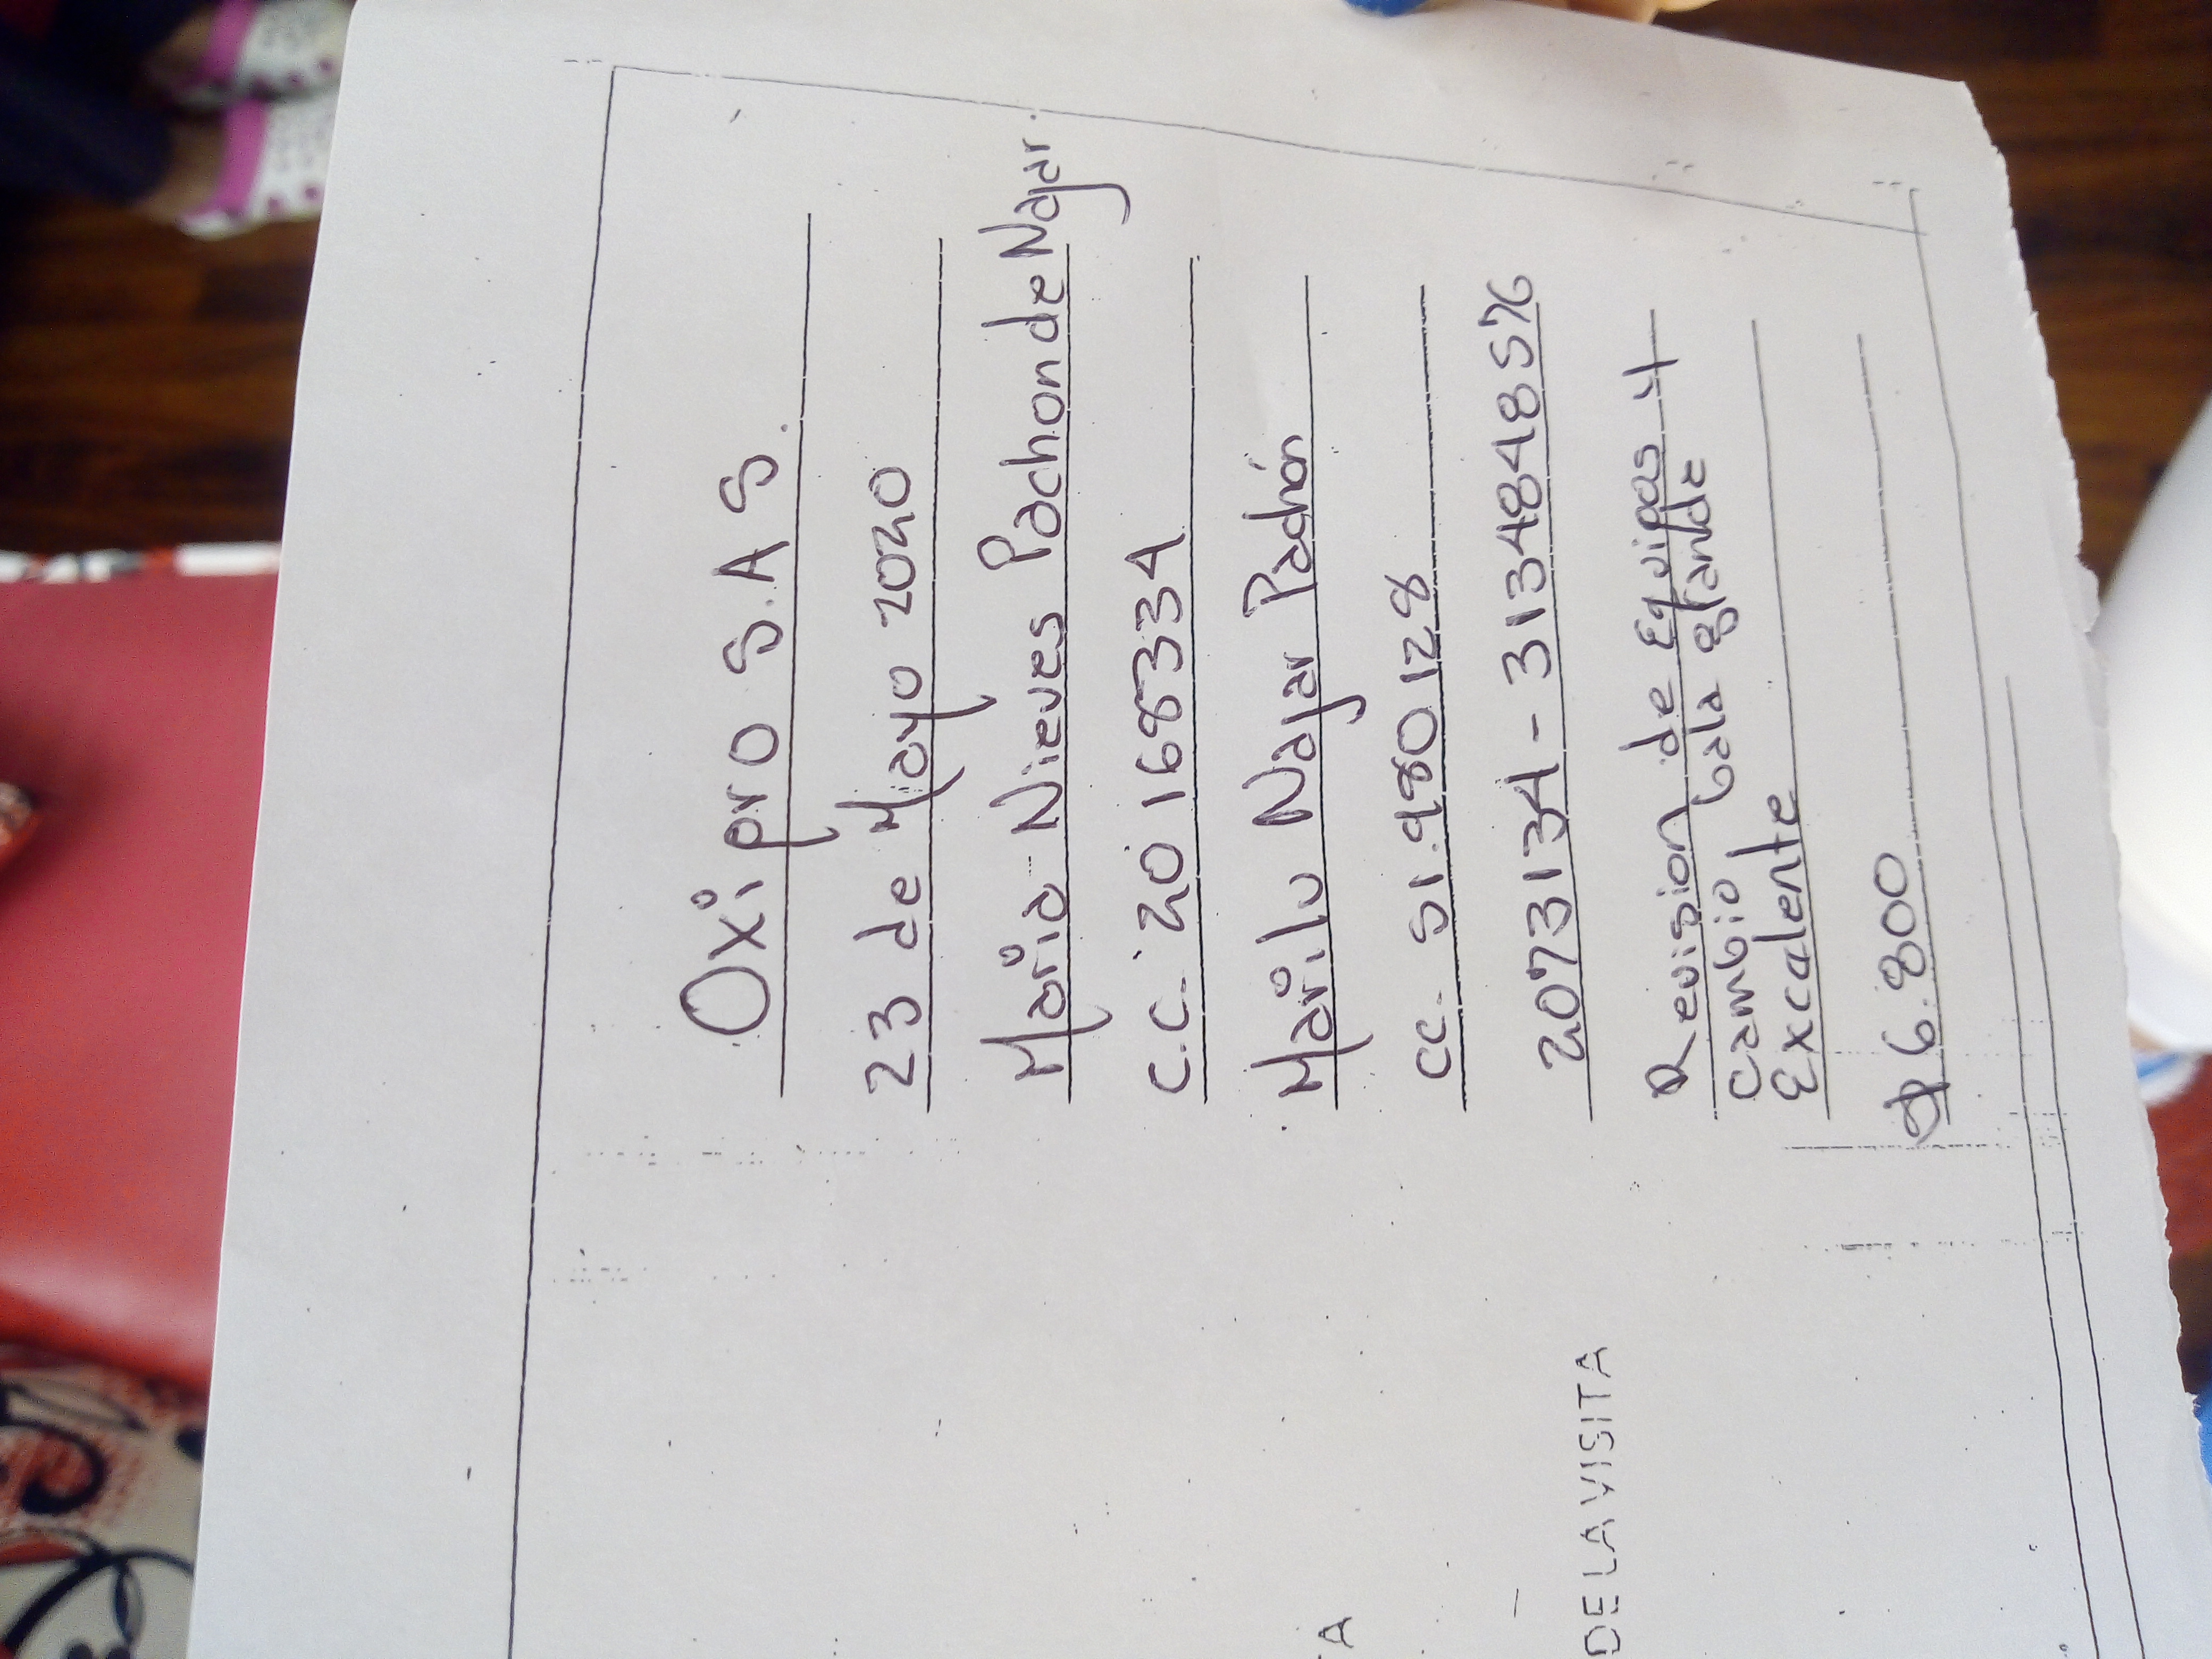 Oxipro S.A S.
23 de Mayo 2020
Maria Nieves Pachon de Najar.
C.C. 20168334
Marilu Najar Pachón
CC. 51.980128
2073134 - 3134848576
Revision de Equipos y
cambio bala grande
Excelente
$ 6.800
TA
DE LA VISITA